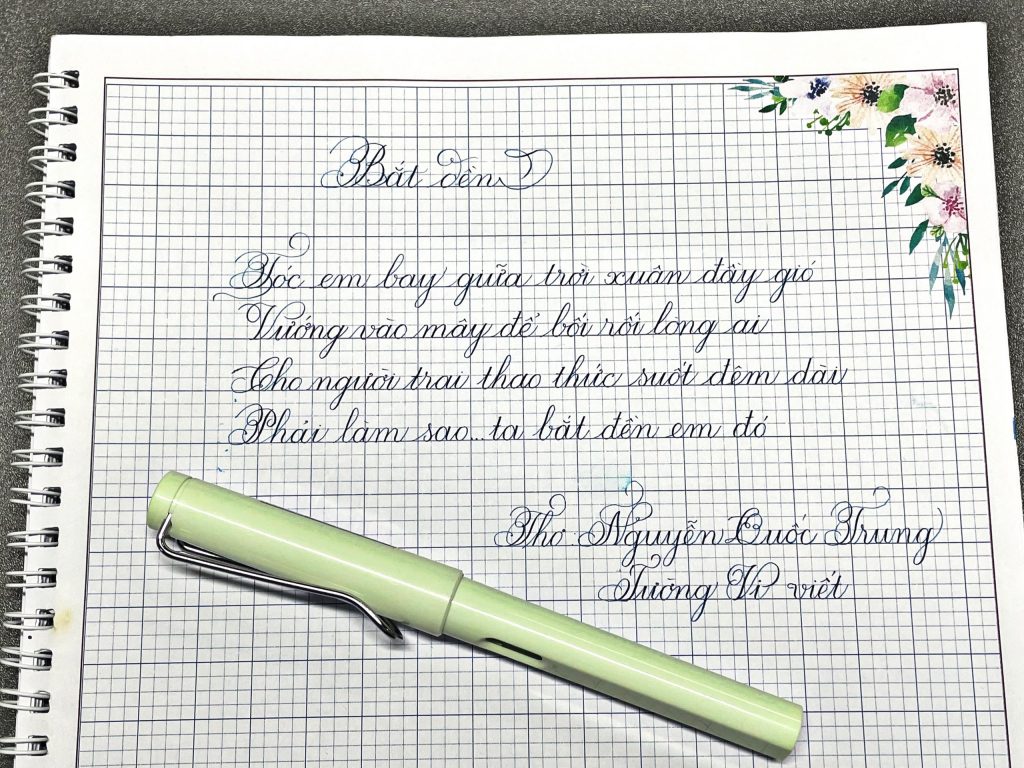 Bắt đền
Tóc em bay giữa trời xuân đầy gió
Vướng vào mây để bối rối lòng ai
Cho người trai thao thức suốt đêm dài
Phải làm sao...ta bắt đền em đó
Thơ Nguyễn Quốc Trung
Tường Vi viết